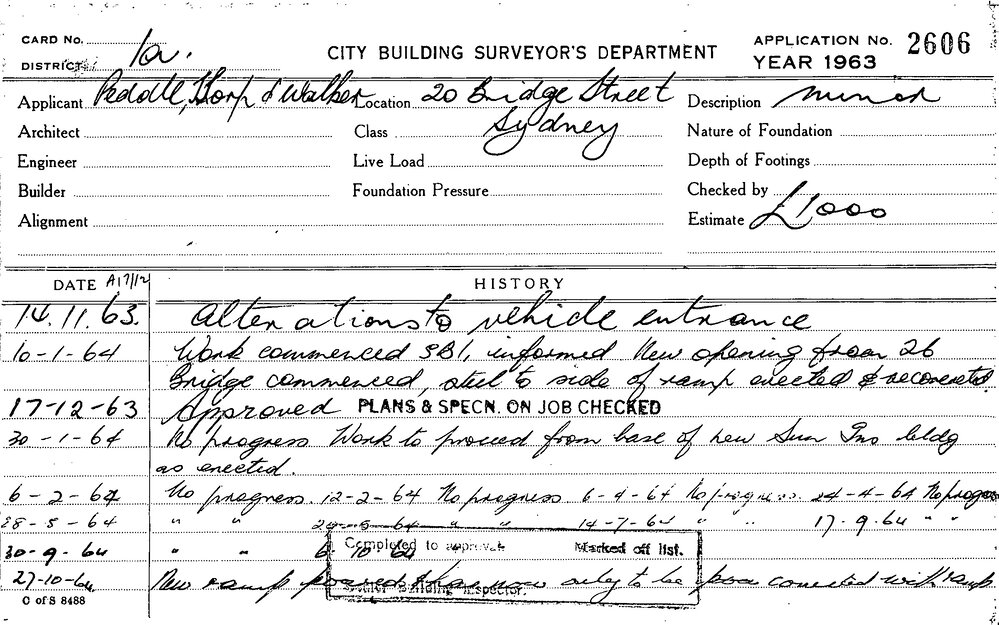 CARD No. 1a.
DISTRICT
CITY BUILDING SURVEYOR'S DEPARTMENT
APPLICATION No. 2606
YEAR 1963
Applicant Peddle, Thorp & Walker Location 20 Bridge Street Description minor
Architect Class Sydney Nature of Foundation
Engineer Live Load Depth of Footings
Builder Foundation Pressure Checked by
Alignment Estimate £1000
DATE A17/12 HISTORY
14.11.63. Alterations to vehicle entrance
10-1-64 Work commenced SBI, informed New opening from 26
Bridge commenced, steel to side of ramp erected &
17-12-63 Approved PLANS & SPECN. ON JOB CHECKED
30-1-64 No progress Work to proceed from base of new Sun Ins bldg
as erected.
6-2-64 No progress. 12-2-64 No progress 6-4-64 No progress. 24-4-64 No progress
28-5-64 " " 14-7-64 " " 17.9.64 " "
30-9-64 " "
Completed to approval. Marked off list.
27-10-64 New ramp now only to be with ramp
Building Inspector.
C of S 8488